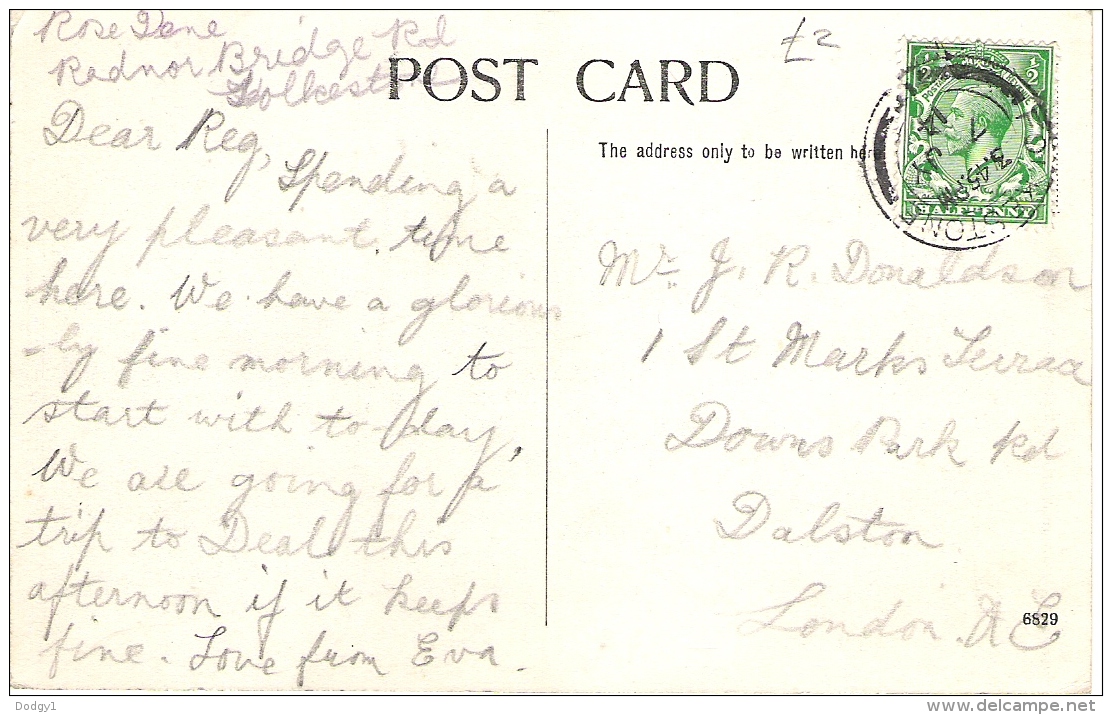 Rose Dene
Radnor Bridge Rd
Folkestone
Dear Reg,
Spending a
very pleasant time
here. We have a glorious
-ly fine morning to
start with to-day,
We are going for a
trip to Deal this
afternoon if it keeps
fine. Love from Eva.
£2
POST CARD
The address only to be written here
HALFPENNY
3.45 PM
7 JY
14
Mr. J. R. Donaldson
1 St Marks Terrace
Downs Park Rd
Dalston
London. N E
6829
Dodgy1
delcampe.net